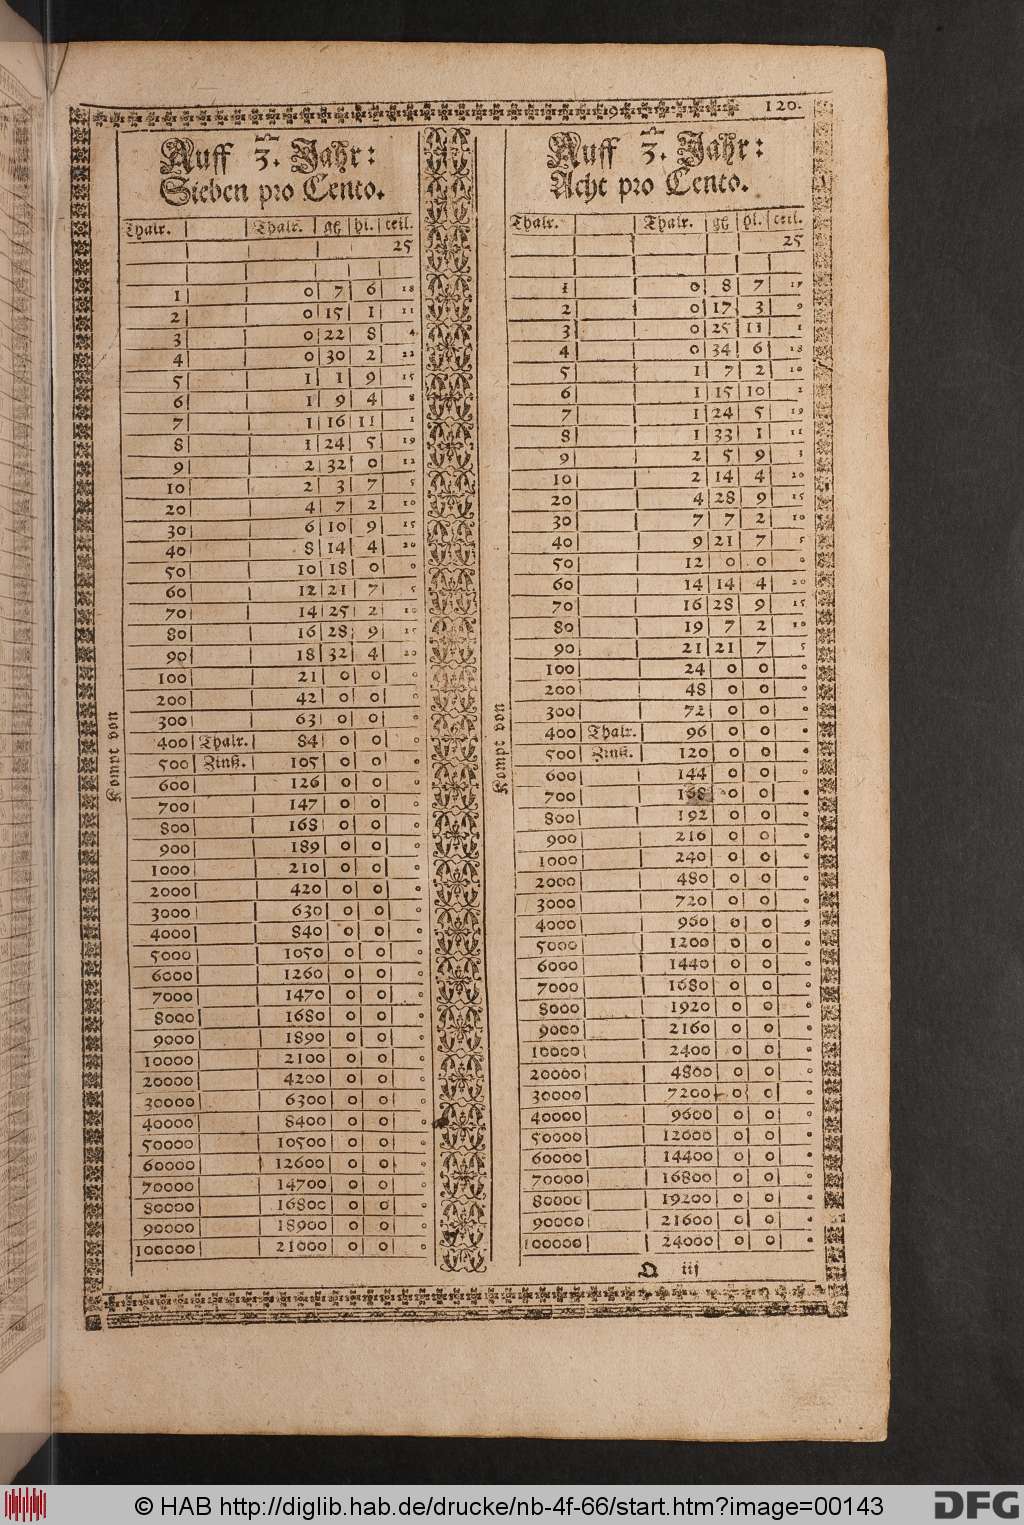 120.
Auff 3. Jahr:
Sieben pro Cento.
Thalr. | | Thalr. | gß | hl. | teil.
25
1 | | 0 | 7 | 6 | 18
2 | | 0 | 15 | 1 | 11
3 | | 0 | 22 | 8 | 4
4 | | 0 | 30 | 2 | 22
5 | | 1 | 1 | 9 | 15
6 | | 1 | 9 | 4 | 8
7 | | 1 | 16 | 11 | 1
8 | | 1 | 24 | 5 | 19
9 | | 2 | 32 | 0 | 12
10 | | 2 | 3 | 7 | 5
20 | | 4 | 7 | 2 | 10
30 | | 6 | 10 | 9 | 15
40 | | 8 | 14 | 4 | 20
50 | | 10 | 18 | 0 | 0
60 | | 12 | 21 | 7 | 5
70 | | 14 | 25 | 2 | 10
80 | | 16 | 28 | 9 | 15
90 | | 18 | 32 | 4 | 20
100 | | 21 | 0 | 0 | 0
200 | | 42 | 0 | 0 | 0
300 | | 63 | 0 | 0 | 0
400 | Thalr. | 84 | 0 | 0 | 0
500 | Zinß. | 105 | 0 | 0 | 0
600 | | 126 | 0 | 0 | 0
700 | | 147 | 0 | 0 | 0
800 | | 168 | 0 | 0 | 0
900 | | 189 | 0 | 0 | 0
1000 | | 210 | 0 | 0 | 0
2000 | | 420 | 0 | 0 | 0
3000 | | 630 | 0 | 0 | 0
4000 | | 840 | 0 | 0 | 0
5000 | | 1050 | 0 | 0 | 0
6000 | | 1260 | 0 | 0 | 0
7000 | | 1470 | 0 | 0 | 0
8000 | | 1680 | 0 | 0 | 0
9000 | | 1890 | 0 | 0 | 0
10000 | | 2100 | 0 | 0 | 0
20000 | | 4200 | 0 | 0 | 0
30000 | | 6300 | 0 | 0 | 0
40000 | | 8400 | 0 | 0 | 0
50000 | | 10500 | 0 | 0 | 0
60000 | | 12600 | 0 | 0 | 0
70000 | | 14700 | 0 | 0 | 0
80000 | | 16800 | 0 | 0 | 0
90000 | | 18900 | 0 | 0 | 0
100000 | | 21000 | 0 | 0 | 0
Kompt von
Auff 3. Jahr:
Acht pro Cento.
Thalr. | | Thalr. | gß | hl. | teil.
25
1 | | 0 | 8 | 7 | 17
2 | | 0 | 17 | 3 | 9
3 | | 0 | 25 | 11 | 1
4 | | 0 | 34 | 6 | 18
5 | | 1 | 7 | 2 | 10
6 | | 1 | 15 | 10 | 2
7 | | 1 | 24 | 5 | 19
8 | | 1 | 33 | 1 | 11
9 | | 2 | 5 | 9 | 3
10 | | 2 | 14 | 4 | 20
20 | | 4 | 28 | 9 | 15
30 | | 7 | 7 | 2 | 10
40 | | 9 | 21 | 7 | 5
50 | | 12 | 0 | 0 | 0
60 | | 14 | 14 | 4 | 20
70 | | 16 | 28 | 9 | 15
80 | | 19 | 7 | 2 | 10
90 | | 21 | 21 | 7 | 5
100 | | 24 | 0 | 0 | 0
200 | | 48 | 0 | 0 | 0
300 | | 72 | 0 | 0 | 0
400 | Thalr. | 96 | 0 | 0 | 0
500 | Zinß. | 120 | 0 | 0 | 0
600 | | 144 | 0 | 0 | 0
700 | | 168 | 0 | 0 | 0
800 | | 192 | 0 | 0 | 0
900 | | 216 | 0 | 0 | 0
1000 | | 240 | 0 | 0 | 0
2000 | | 480 | 0 | 0 | 0
3000 | | 720 | 0 | 0 | 0
4000 | | 960 | 0 | 0 | 0
5000 | | 1200 | 0 | 0 | 0
6000 | | 1440 | 0 | 0 | 0
7000 | | 1680 | 0 | 0 | 0
8000 | | 1920 | 0 | 0 | 0
9000 | | 2160 | 0 | 0 | 0
10000 | | 2400 | 0 | 0 | 0
20000 | | 4800 | 0 | 0 | 0
30000 | | 7200 | 0 | 0 | 0
40000 | | 9600 | 0 | 0 | 0
50000 | | 12000 | 0 | 0 | 0
60000 | | 14400 | 0 | 0 | 0
70000 | | 16800 | 0 | 0 | 0
80000 | | 19200 | 0 | 0 | 0
90000 | | 21600 | 0 | 0 | 0
100000 | | 24000 | 0 | 0 | 0
Kompt von
Q iij
© HAB http://diglib.hab.de/drucke/nb-4f-66/start.htm?image=00143
DFG